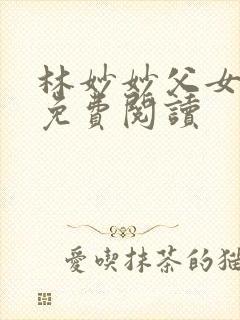 林妙妙父女
免費閱讀
愛喫抹茶的貓